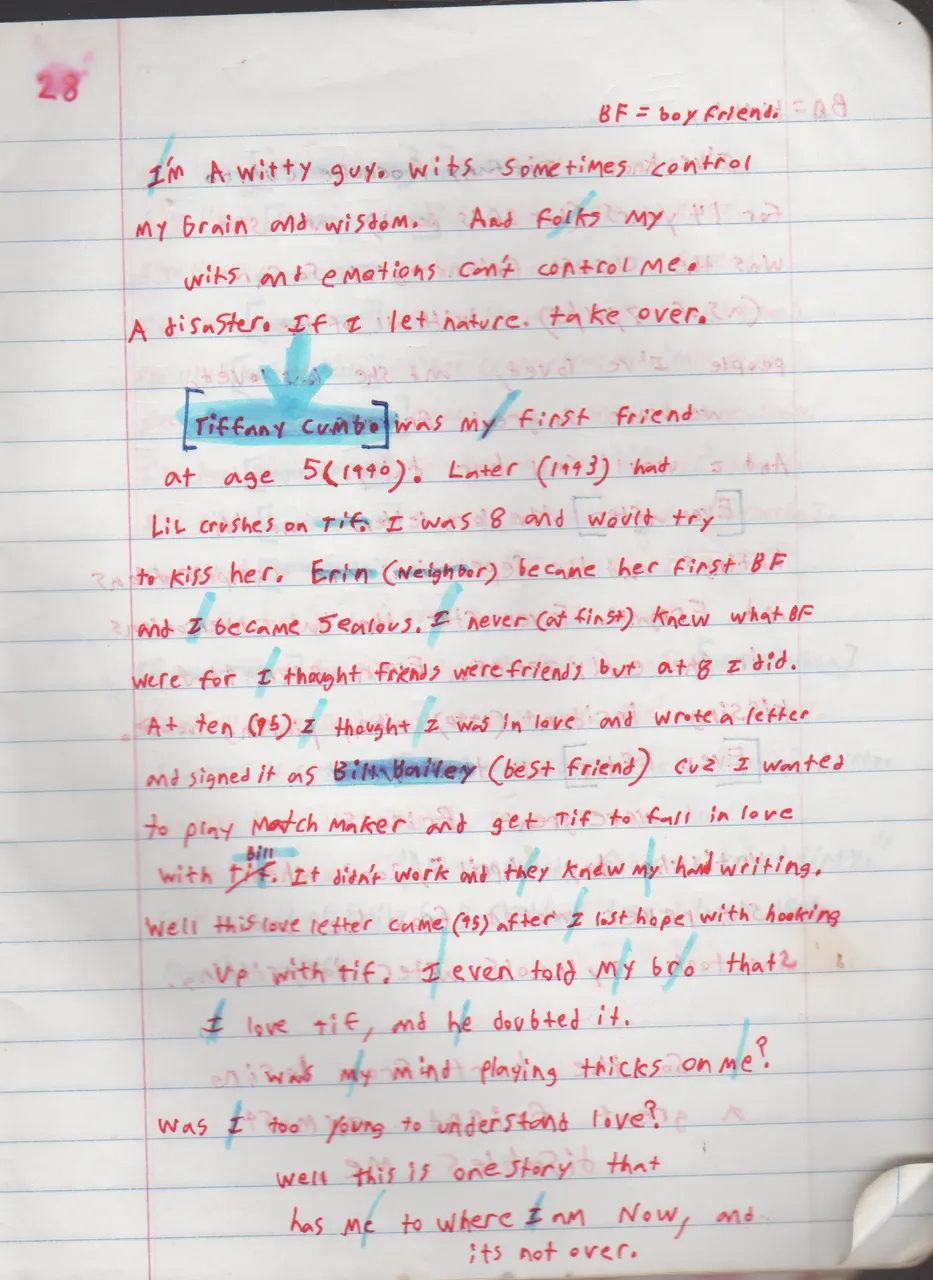 28
BF = boy friend.
I'm A witty guy. wits sometimes control
my brain and wisdom. And folks my
wits and emotions can't control me.
A disaster. If I let nature. take over.
[Tiffany Cumbo] was my first friend
at age 5(1990). Later (1993) had
Lil crushes on Tif. I was 8 and would try
to kiss her. Erin (Neighbor) became her first BF
and I became Jealous. I never (at first) knew what BF
were for I thought friends were friends but at 8 I did.
At ten (95) I thought I was in love and wrote a letter
and signed it as Bill Bailey (best friend) cuz I wanted
to play Match Maker and get Tif to fall in love
Bill
with tif. It didn't work and they knew my hand writing.
Well this love letter came (95) after I lost hope with hooking
Up with tif. I even told my bro that
I love tif, and he doubted it.
was my mind playing thicks on me?
Was I too young to understand love?
well this is one story that
has me to where I am Now, and
its not over.